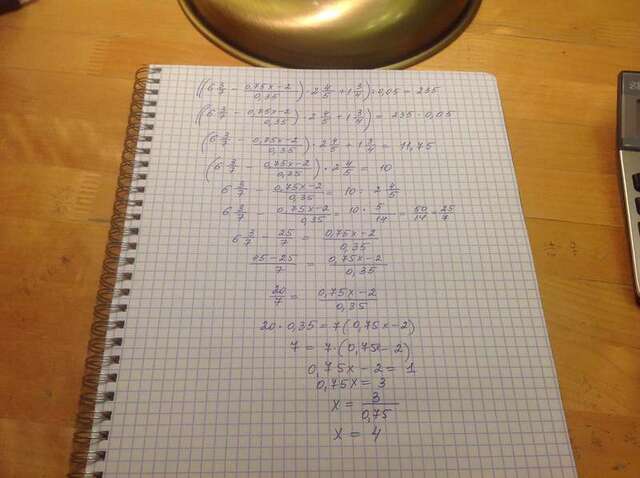 ((6 3/7 − (0,75x−2)/0,35) · 2 4/5 + 1 3/4) : 0,05 = 235
((6 3/7 − (0,75x−2)/0,35) · 2 4/5 + 1 3/4) = 235 · 0,05
(6 3/7 − (0,75x−2)/0,35) · 2 4/5 + 1 3/4 = 11,75
(6 3/7 − (0,75x−2)/0,35) · 2 4/5 = 10
6 3/7 − (0,75x−2)/0,35 = 10 : 2 4/5
6 3/7 − (0,75x−2)/0,35 = 10 · 5/14 = 50/14 = 25/7
6 3/7 − 25/7 = (0,75x−2)/0,35
(45−25)/7 = (0,75x−2)/0,35
20/7 = (0,75x−2)/0,35
20 · 0,35 = 7(0,75x−2)
7 = 7·(0,75x−2)
0,75x − 2 = 1
0,75x = 3
x = 3/0,75
x = 4